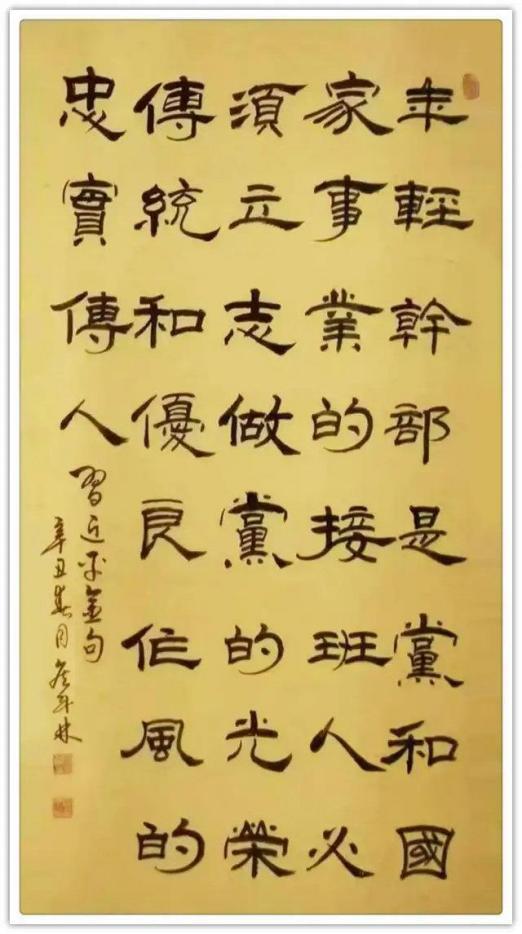 年輕幹部是黨和國
家事業的接班人必
須立志做黨的光榮
傳統和優良作風的
忠實傳人
習近平金句
辛丑春月